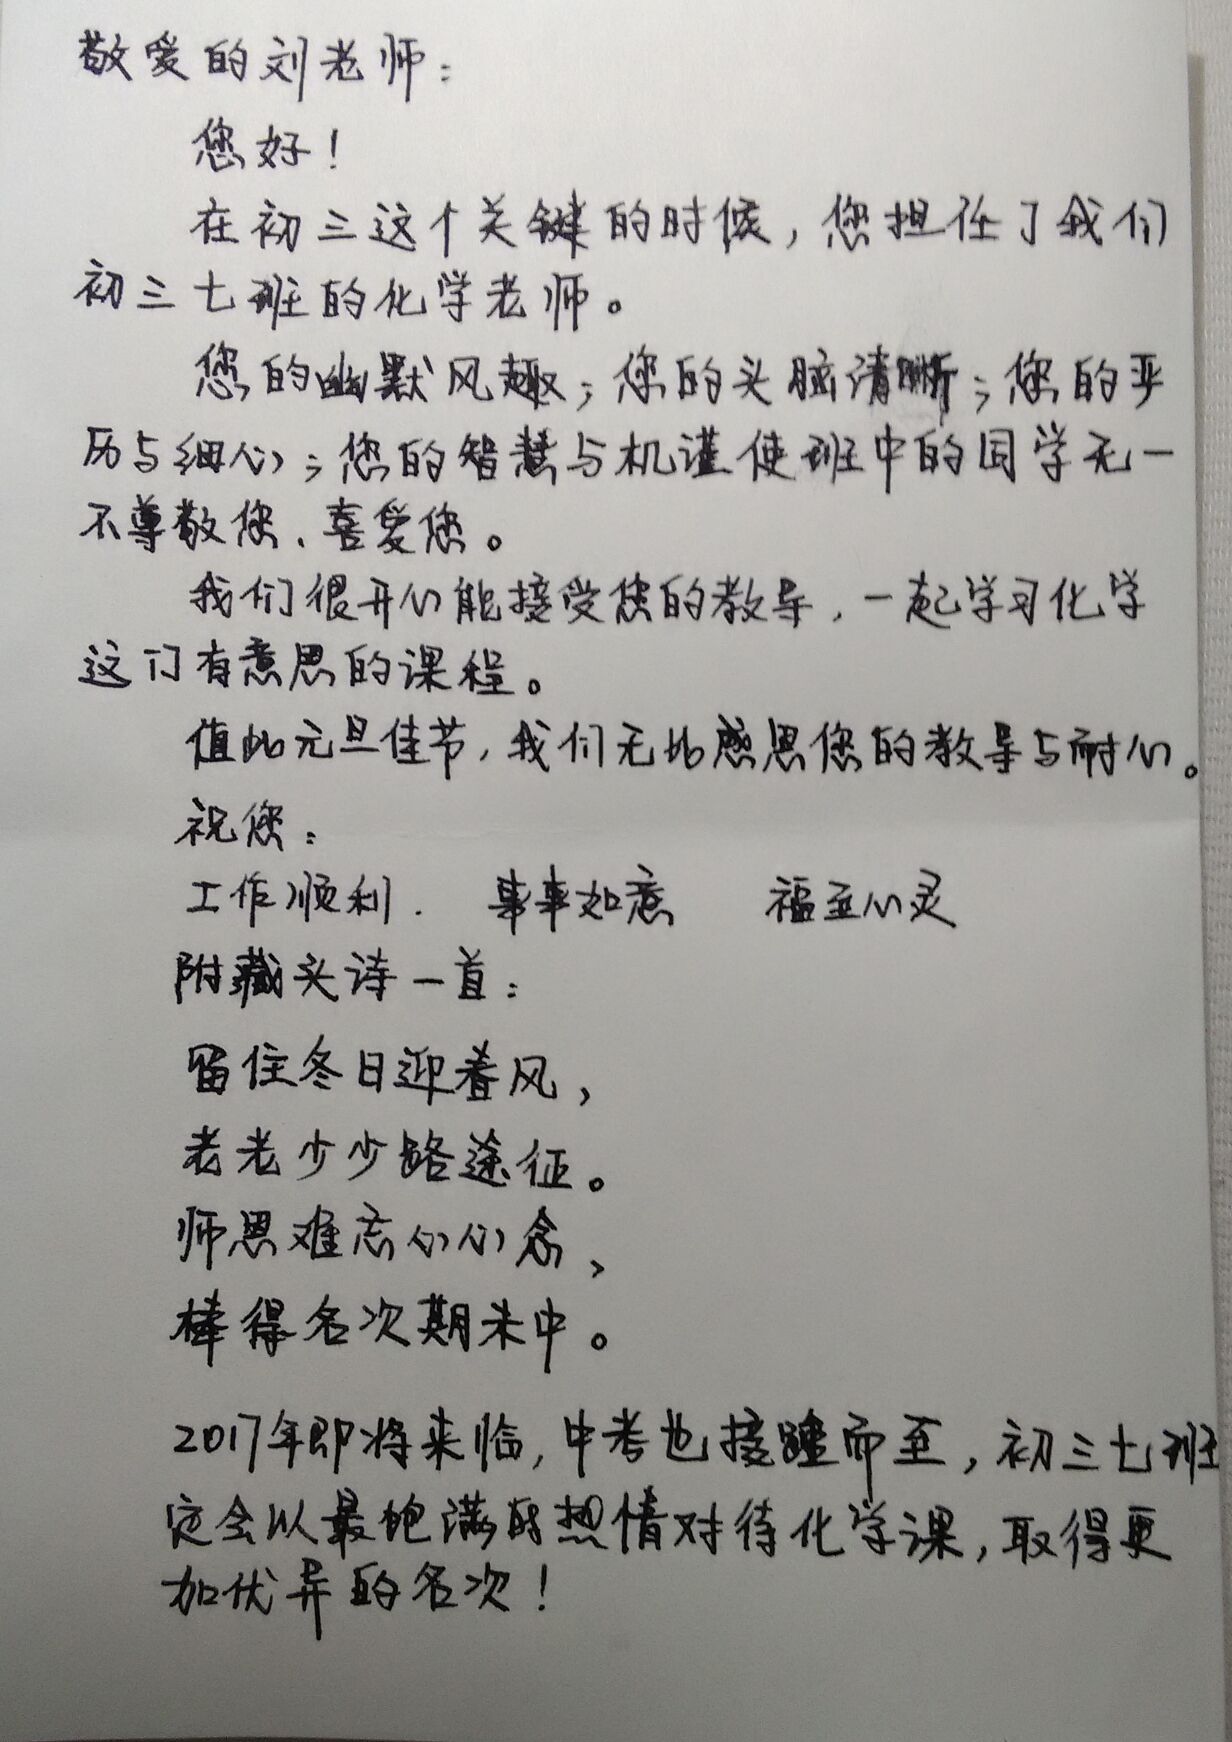 敬爱的刘老师：
您好！
在初三这个关键的时候，您担任了我们
初三七班的化学老师。
您的幽默风趣；您的头脑清晰；您的严
历与细心；您的智慧与机谨使班中的同学无一
不尊敬您、喜爱您。
我们很开心能接受您的教导，一起学习化学
这门有意思的课程。
值此元旦佳节，我们无比感恩您的教导与耐心。
祝您：
工作顺利. 事事如意 福至心灵
附藏头诗一首：
留住冬日迎春风，
老老少少踏途征。
师恩难忘心心念、
棒得名次期末中。
2017年即将来临，中考也接踵而至，初三七班
定会以最饱满的热情对待化学课，取得更
加优异的名次！